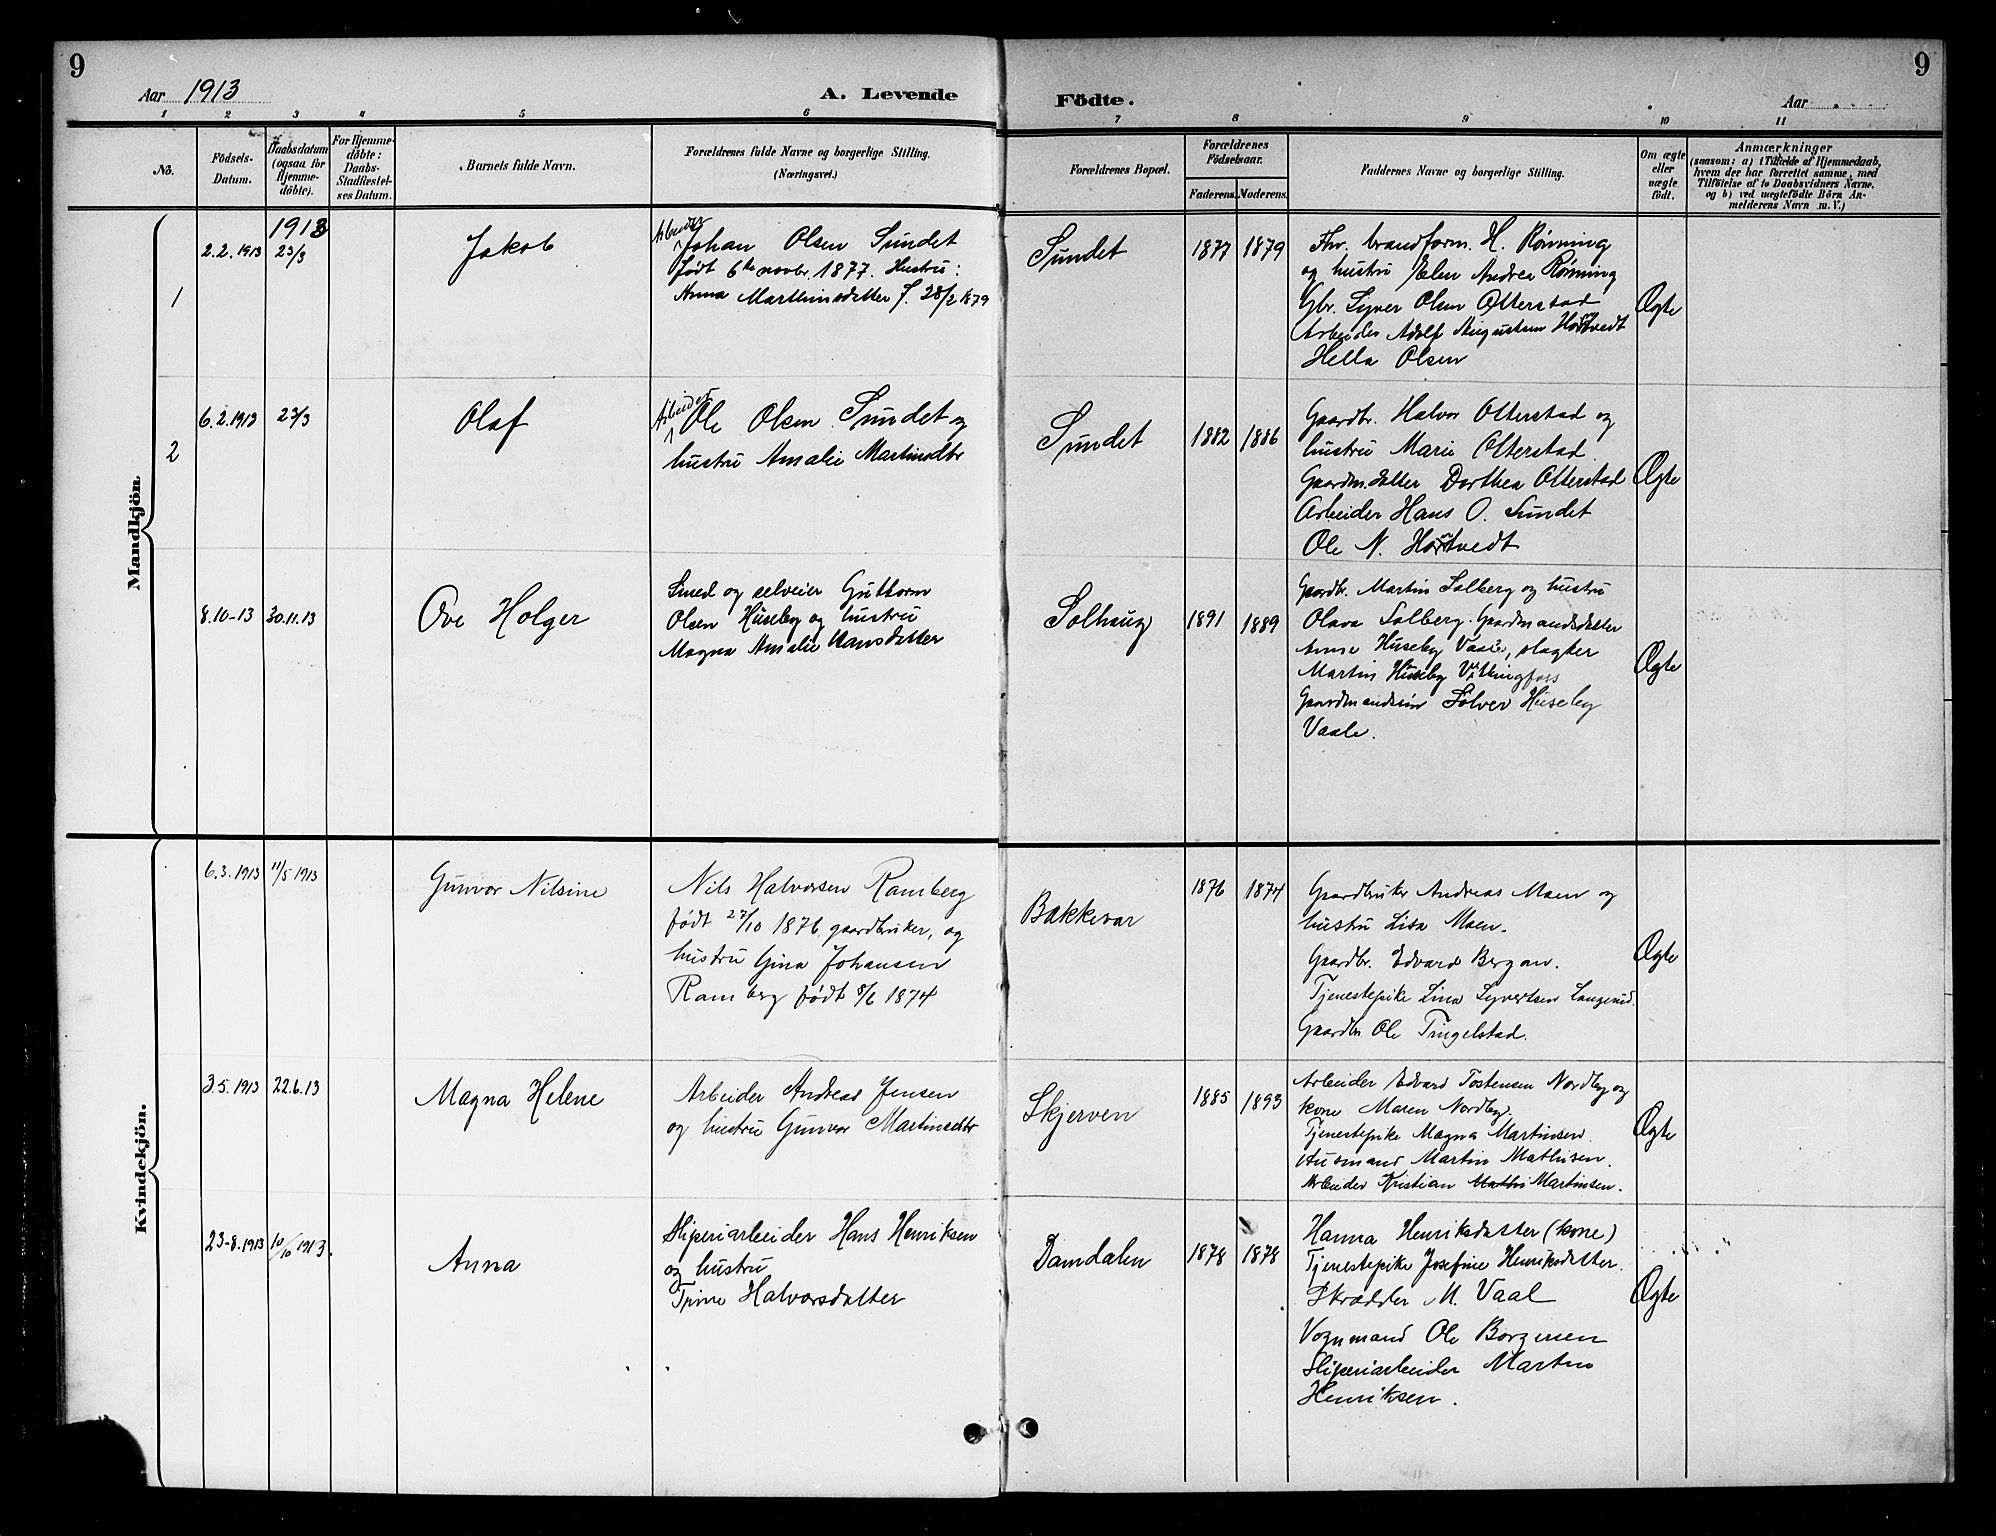 9
9
Aar 1913
A. Levende
Födte.
Aar
1 2 3 4 5 6 7 8 9 10 11
No.
Födsels-Datum.
Daabsdatum (ogsaa for Hjemme-döbte).
For Hjemme-döbte: Daabs-Stadfæstel-ses Datum.
Barnets fulde Navn.
Forældrenes fulde Navne og borgerlige Stilling.
(Næringsvei.)
Forældrenes Bopæl.
Forældrenes Födselsaar.
Faderens. Moderens.
Faddernes Navne og borgerlige Stilling.
Om ægte eller uægte födt.
Anmærkninger
(saasom: a) i Tilfælde af Hjemmedaab,
hvem der har forrettet samme, med
Tilföielse af to Daabsvidners Navne,
og b) ved uægtefödte Börn An-
melderens Navn m. V.)
Mandkjön.
1
2.2.1913
1913
23/3
Jakob
Arbeider
Johan Olsen Sundet
født 6te novbr. 1877. Hustru:
Anna Marthinsdatter f. 28/2 1879
Sundet
1877
1879
Fhv. brandform. H. Rønning
og hustru Elen Andrea Rønning
Gbr. Syver Olsen Otterstad
Arbeider Adolf Augustsen Hørtvedt
Hella Olsen
Ægte
2
6.2.1913
23/3
Olaf
Arbeider
Ole Olsen Sundet og
hustru Amalie Martinsdtr
Sundet
1882
1886
Gaardbr. Halvor Otterstad og
hustru Marie Otterstad.
Gaardm.datter Dorthea Otterstad
Arbeider Hans O. Sundet
Ole N. Hørtvedt
Ægte
8.10-13
30.11.13
Ove Holger
Smed og selveier Guttorm
Olsen Huseby og hustru
Magna Amalie Hansdatter
Solhaug
1891
1889
Gaardbr. Martin Solberg og hustru
Olava Solberg. Gaardmandsdatter
Anne Huseby Vaale, slagter
Martin Huseby Vittingfoss
Gaardmandssøn Sølver Huseby
Vaale.
Ægte
Kvindekjön.
6.3.1913
11/5 1913
Gunvor Nilsine
Nils Halvorsen Ramberg
født 27/10 1876 gaardbruker, og
hustru Gina Johansen
Ramberg født 8/6 1874
Bakkevar
1876
1874
Gaardbruker Andreas Moen og
hustru Lisa Moen.
Gaardbr. Edvard Bergan.
Tjenestepike Lina Syvertsen Langerud.
Gaardbr. Ole Tingelstad.
Ægte
3.5.1913
22.6.13
Magna Helene
Arbeider Andreas Jensen
og hustru Gunvor Martinsdtr
Skjerven
1885
1893
Arbeider Edvard Tostensen Nordby og
kone Maren Nordby.
Tjenestepike Magna Martinsen.
Husmand Martin Mathisen.
Arbeider Kristian Mathi Martinsen.
Ægte
23-8.1913
10/10 1913.
Anna
Sliperiarbeider Hans Henriksen
og hustru
Trine Halvorsdatter
Damdalen
1878
1878
Hanna Henriksdatter (kone)
Tjenestepike Josefine Henriksdatter.
Skrædder M. Vaal
Vognmand Ole Borgersen
Sliperiarbeider Martin
Henriksen.
Ægte